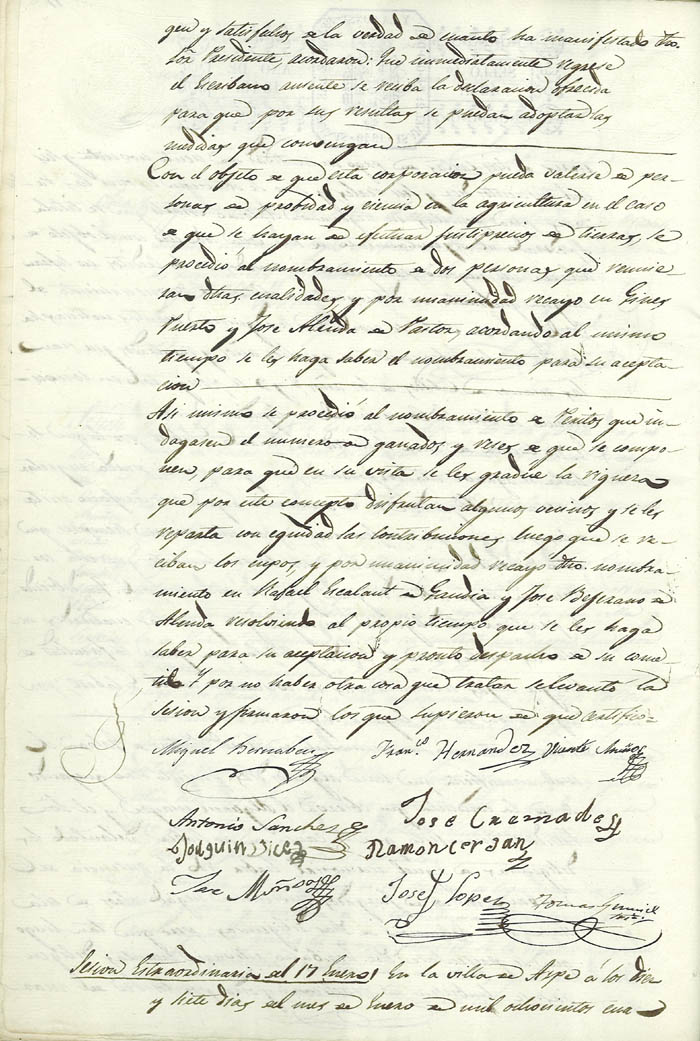 gen y satisfechos de la verdad de cuanto ha manifestado dho.
Sor Presidente, acordaron: Que inmediatamente regrese
el Escribano ausente se reciba la declaracion ofrecida
para que por sus resultas se puedan adoptar las
medidas que convengan
Con el objeto de que esta corporacion pueda valerse de per-
sonas de probidad y ciencia en la agricultura en el caso
de que se hayan de efectuar justiprecios de tierras, se
procedió al nombramiento de dos personas que reunie
ran dhas. cualidades, y por unanimidad recayo en Gines
Puerto y Jose Alenda de Pastor, acordando al mismo
tiempo se les haga saber el nombramiento para su acepta-
cion
Asi mismo se procedió al nombramiento de Peritos que in-
dagasen el numero de ganados y reses de que se compo-
nen, para que en su vista se les gradue la riqueza
que por este concepto disfrutan algunos vecinos y se les
reparta con equidad las contribuciones luego que se re-
ciban los cupos, y por unanimidad recayo dho. nombra-
miento en Rafael Escalant de Gandia y Jose Beferano de
Alenda resolviendo al propio tiempo que se les haga
saber para su aceptacion y pronto despacho de su come-
tido. Y por no haber otra cosa que tratar se levanto la
Sesion y firmaron los que supieron de que certifico=
Miguel Bernabeu Franco. Hernandez Vicente Muñoz
Antonio Sanchez Jose Cremades
Joaquin Ramon Cerdan
Jose Muñoz Josef Lopez Tomas
Sesion Extraordinaria del 17 Enero. En la villa de Aspe á los diez
y siete dias del mes de Enero de mil ochocientos cua